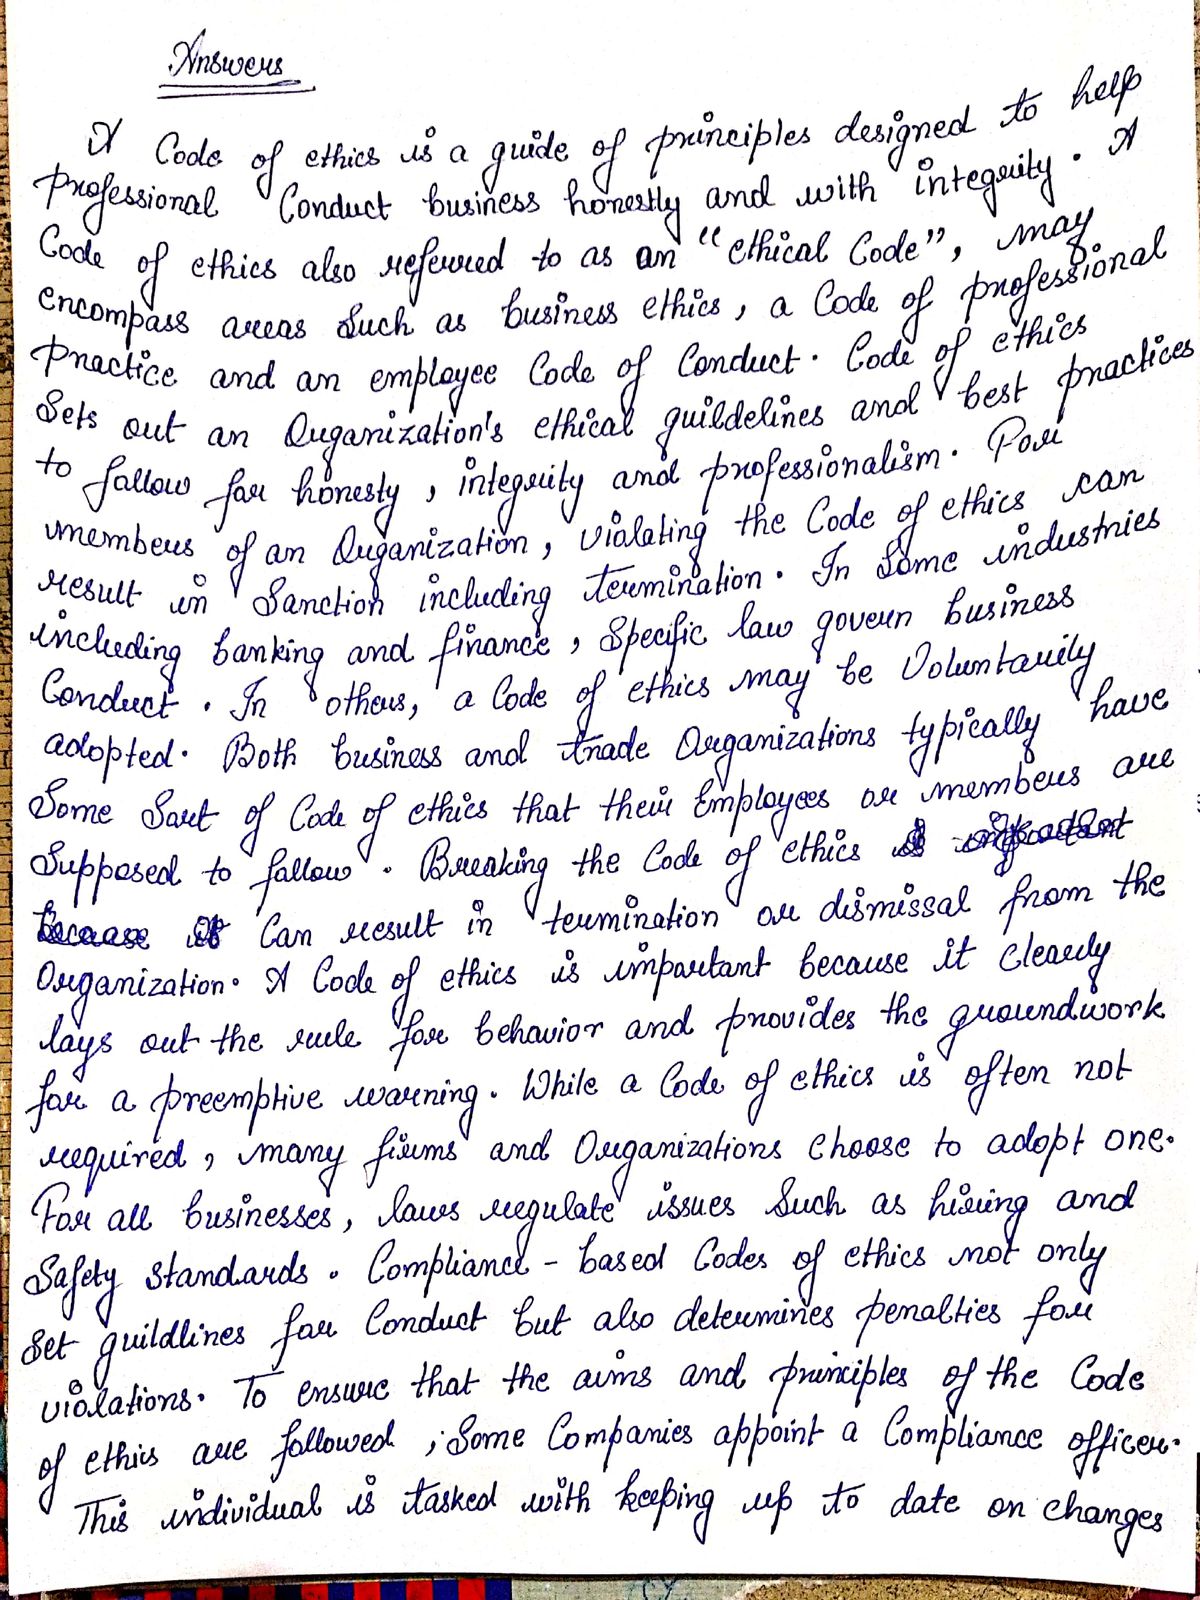 Answers
A Code of ethics is a guide of principles designed to help
professional Conduct business honestly and with integrity. A
Code of ethics also referred to as an "ethical Code", may
encompass areas such as business ethics, a Code of professional
practice and an employee Code of Conduct. Code of ethics
Sets out an Organization's ethical guildelines and best practices
to follow for honesty, integrity and professionalism. For
members of an Organization, violating the Code of ethics can
result in Sanction including termination. In Some industries
including banking and finance, Specific law govern business
Conduct. In others, a Code of ethics may be Voluntarily
adopted. Both business and trade Organizations typically have
Some Sort of Code of ethics that their Employees or members are
Supposed to follow. Breaking the Code of ethics is important
because it Can result in termination or dismissal from the
Organization. A Code of ethics is important because it clearly
lays out the rule for behavior and provides the groundwork
for a preemptive warning. While a Code of ethics is often not
required, many firms and Organizations choose to adopt one.
For all businesses, laws regulate issues Such as hiring and
Safety standards. Compliance-based Codes of ethics not only
Set guildlines for Conduct but also determines penalties for
violations. To ensure that the aims and principles of the Code
of ethics are followed, Some Companies appoint a Compliance officer.
This individual is tasked with keeping up to date on changes